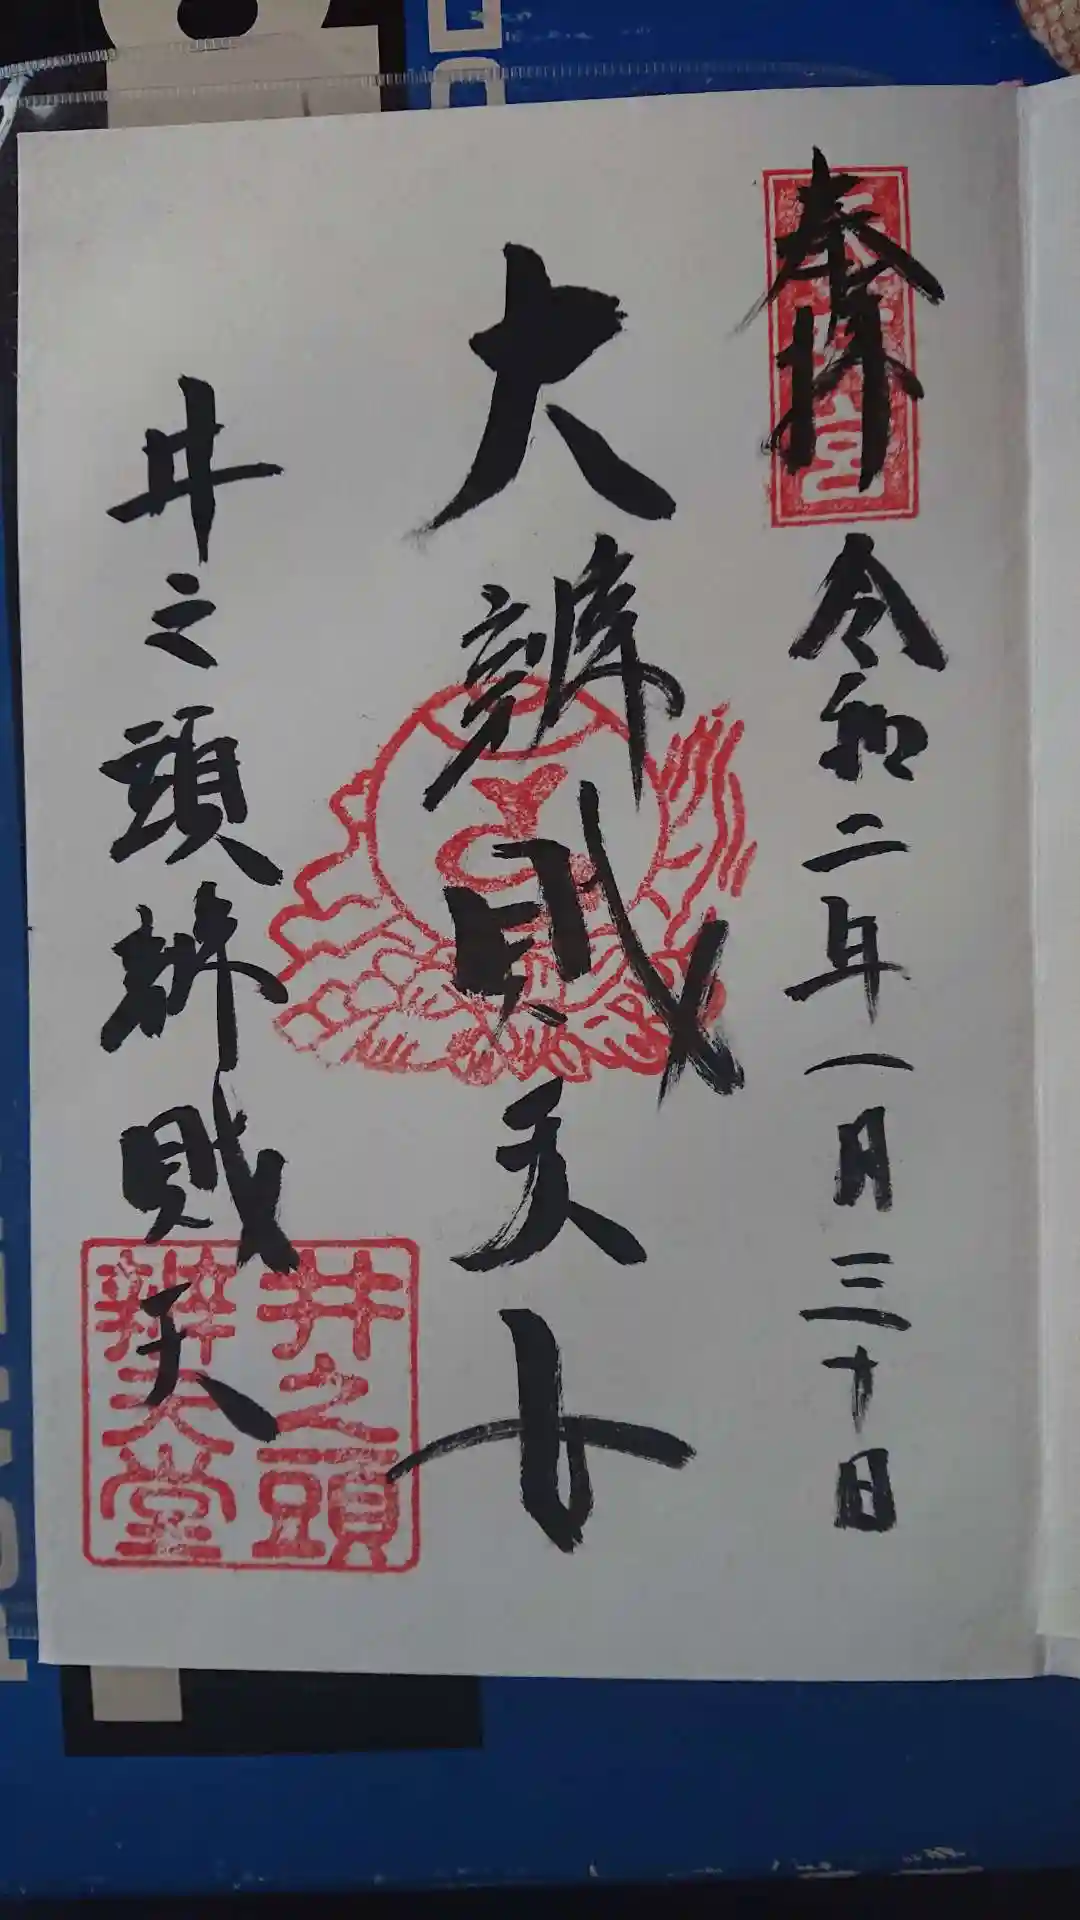 奉拝
令和二年一月三十日
大辨財天女
井之頭辨財天
井之頭
辨天堂